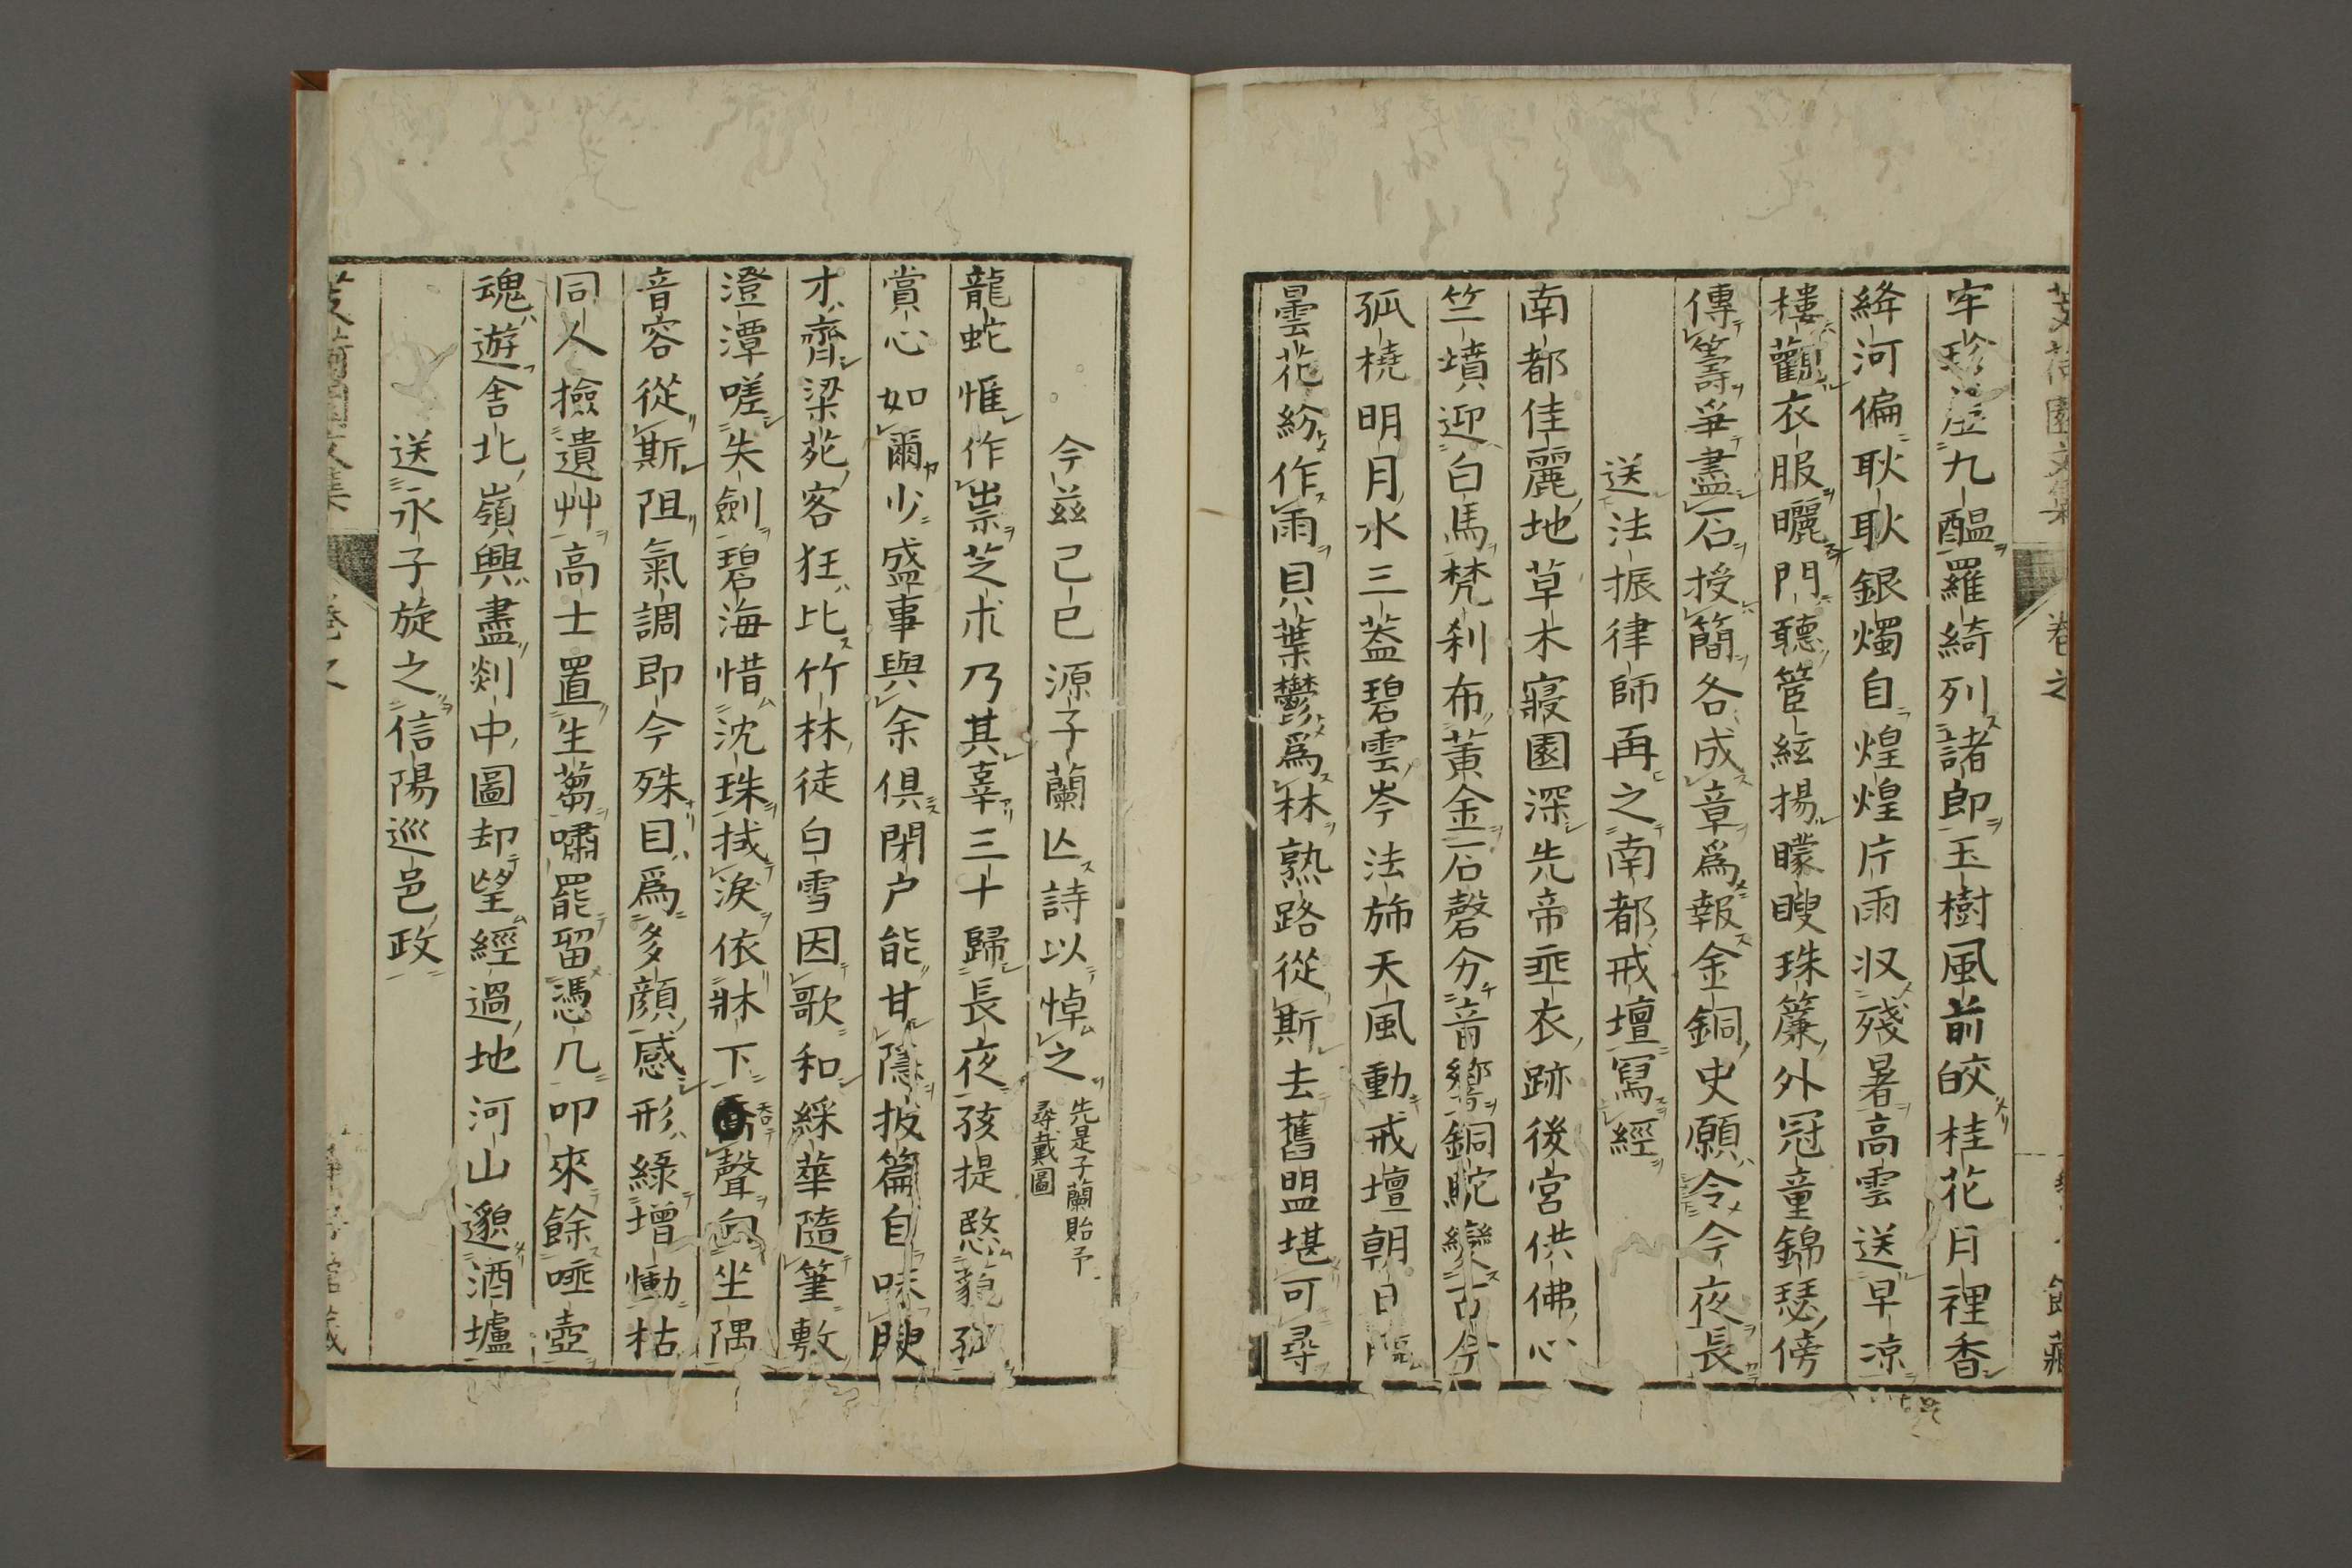 牢珍塩九醞羅綺列諸郎玉樹風前皎桂花月裡香
絳河偏耿耿銀燭自煌煌片雨収殘暑高雲送早涼
樓觀衣服曬門聽管絃揚矇瞍珠簾外冠童錦瑟傍
傳籌爭盡石授簡各成章爲報金銅史願令今夜長
送法振律師再之南都戒壇寫經
南都佳麗地草木寢園深先帝垂衣跡後宮供佛心
竺墳迎白馬梵刹布黃金石磬分音響銅駝變古今
孤橈明月水三葢碧雲岑法斾天風動戒壇朝日臨
曇花紛作雨貝葉鬱爲林熟路從斯去舊盟堪可尋
今茲己巳源子蘭亾詩以悼之 先是子蘭貽予
尋戴圖
龍蛇惟作祟芝朮乃其辜三十歸長夜孩提愍藐孤
賞心如爾少盛事與余俱閉户能甘隱披篇自味腴
才齊梁苑客狂比竹林徒白雪因歌和綵華隨筆敷
澄潭嗟失劍碧海惜沈珠拭淚依牀下吞聲向坐隅
音容從斯阻氣調即今殊目爲多顔感形緣增慟枯
同人撿遺艸高士置生蒭嘯罷留憑几叩來餘唾壺
魂遊舍北嶺興盡剡中圖却望經過地河山邈酒壚
送永子旋之信陽巡邑政